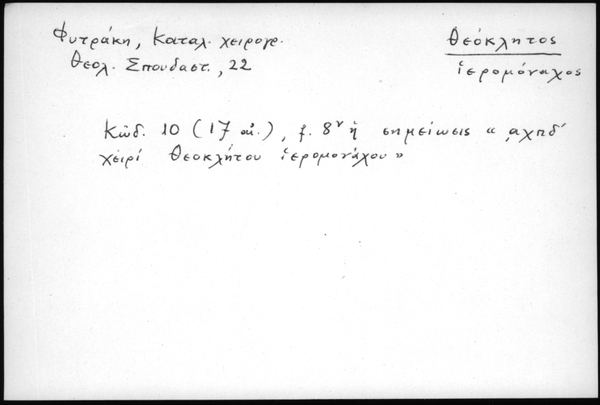 Φυτράκη, Καταλ. χειρογρ.
Θεολ. Σπουδαστ., 22
Θεόκλητος
ἱερομόναχος
Κώδ. 10 (17 αἰ.), f. 8ᵛ ἡ σημείωσις « ͵αχπδʹ
χειρὶ Θεοκλήτου ἱερομονάχου »